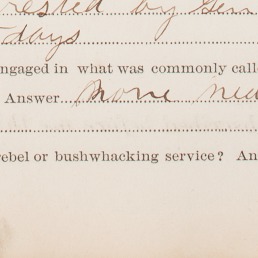 rested by Gen
days
engaged in what was commonly calle
Answer More nea
rebel or bushwhacking service? An